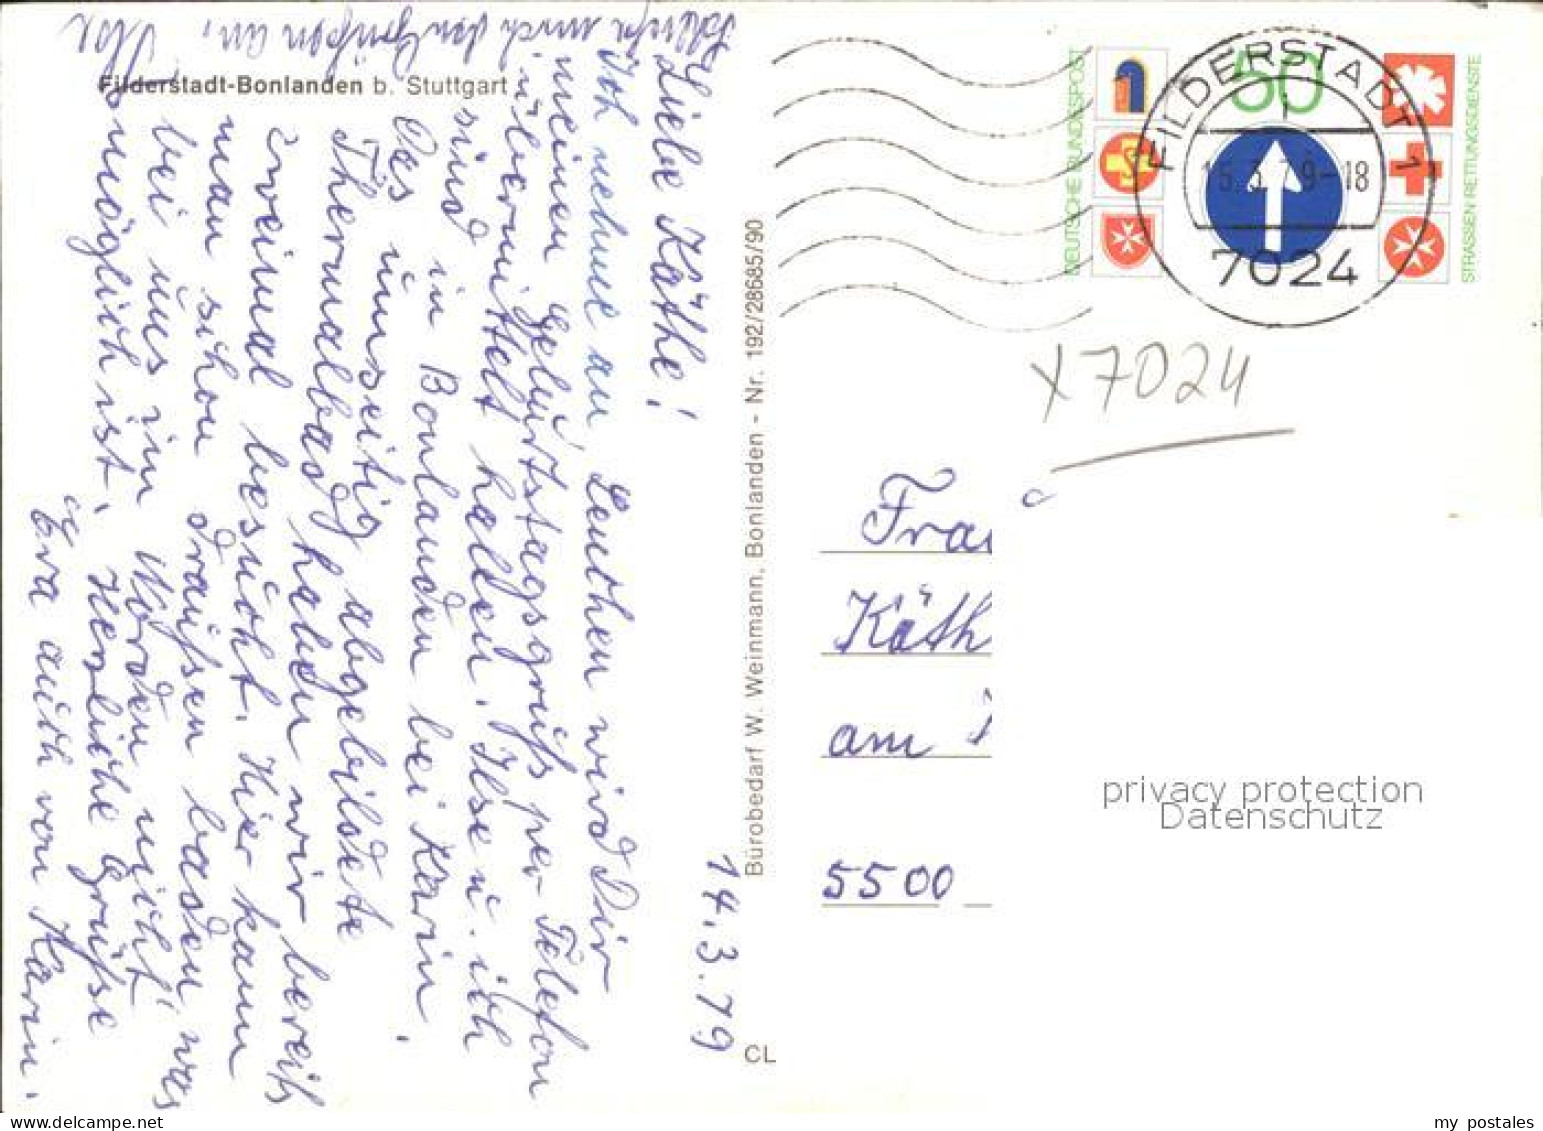 Filderstadt-Bonlanden b. Stuttgart
14.3.79
Liebe Käthe!
Ich nehme an Lenchen wird Dir
meinen Geburtstagsgruß per Telefon
übermittelt haben. Ilse u. ich
sind in Bonlanden bei Karin.
Das umseitig abgebildete
Thermalbad haben wir bereits
zweimal besucht. Hier kann
man schon draußen baden, was
bei uns im Norden nicht
möglich ist. Herzliche Grüße
Eva auch von Karin.
mich den Grüßen an,
Ilse
Bürobedarf W. Weinmann, Bonlanden - Nr. 192/28685/90
CL
DEUTSCHE BUNDESPOST
50
STRASSEN-RETTUNGSDIENSTE
FILDERSTADT 1
15.3.79-18
7024
X7024
Frau
Käth
am
5500
privacy protection
Datenschutz
www.delcampe.net
my_postales